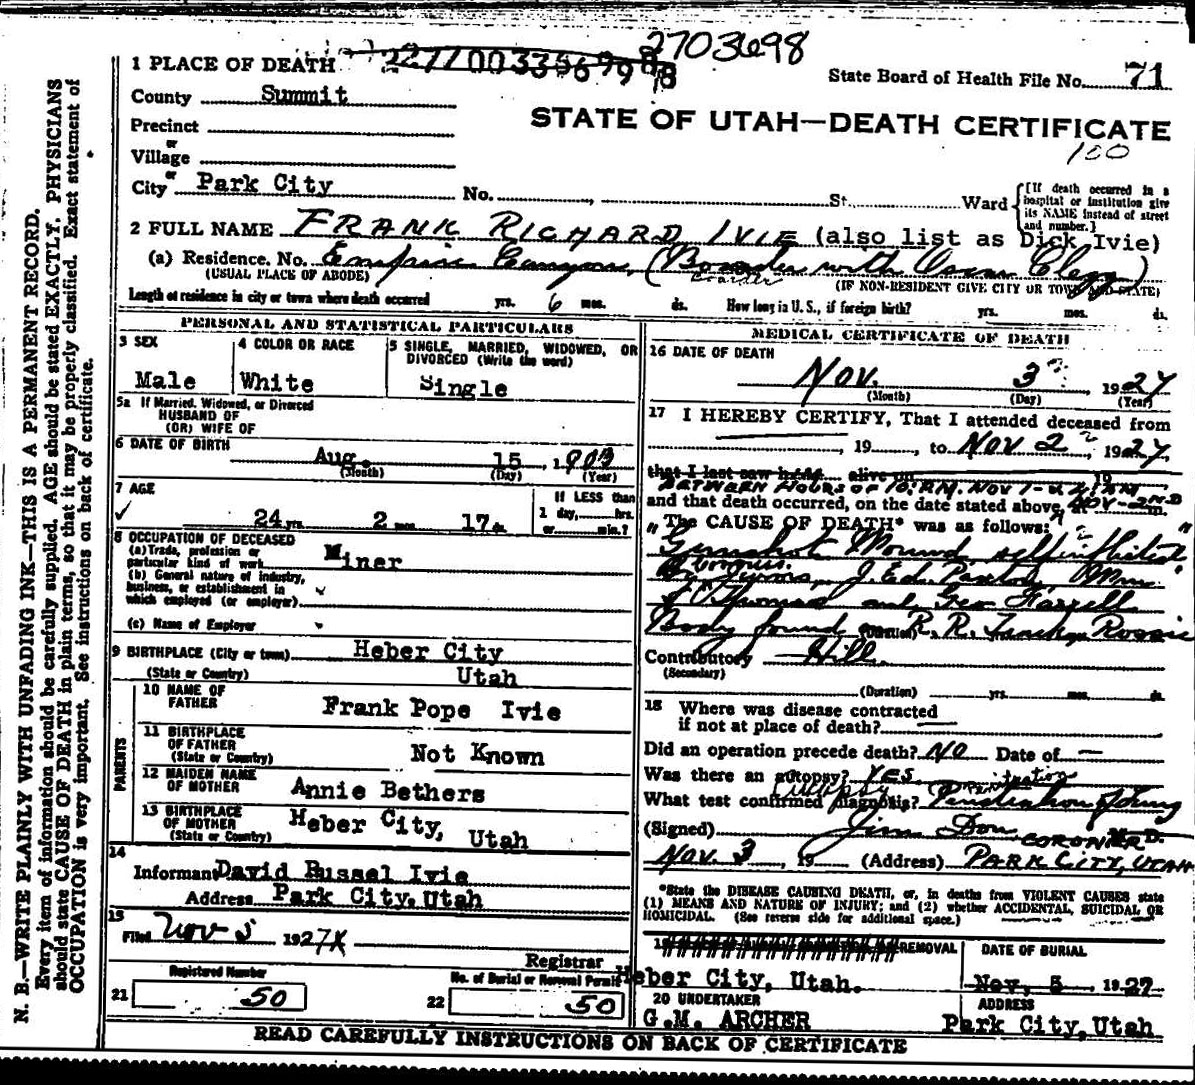 2703698
1 PLACE OF DEATH
State Board of Health File No. 71
County Summit
STATE OF UTAH—DEATH CERTIFICATE
100
Precinct
or
Village
or
City Park City No. St. Ward
[If death occurred in a hospital or institution give its NAME instead of street and number.]
2 FULL NAME FRANK RICHARD IVIE (also list as Dick Ivie)
(a) Residence. No. Empire Canyon, (Boarder with Oscar Clegg)
Boarder
(USUAL PLACE OF ABODE) (IF NON-RESIDENT GIVE CITY OR TOWN AND STATE)
Length of residence in city or town where death occurred yrs. 6 mos. ds. How long in U. S., if foreign birth? yrs. mos. ds.
PERSONAL AND STATISTICAL PARTICULARS
3 SEX
Male
4 COLOR OR RACE
White
5 SINGLE, MARRIED, WIDOWED, OR
DIVORCED (Write the word)
Single
5a If Married, Widowed, or Divorced
HUSBAND OF
(OR) WIFE OF
6 DATE OF BIRTH
Aug. 15, 1903
(Month) (Day) (Year)
7 AGE
24 yrs. 2 mos. 17 ds.
If LESS than
1 day, hrs.
or min.?
8 OCCUPATION OF DECEASED
(a) Trade, profession or
particular kind of work Miner
(b) General nature of industry,
business, or establishment in
which employed (or employer)
(c) Name of Employer
9 BIRTHPLACE (City or town) Heber City
(State or Country) Utah
PARENTS
10 NAME OF
FATHER Frank Pope Ivie
11 BIRTHPLACE
OF FATHER
(State or Country) Not Known
12 MAIDEN NAME
OF MOTHER Annie Bethers
13 BIRTHPLACE
OF MOTHER
(State or Country) Heber City, Utah
14
Informant David Russel Ivie
Address Park City, Utah
15
Filed Nov 5 1927
Registrar
Registered Number
21 50
No. of Burial or Removal Permit
22 50
MEDICAL CERTIFICATE OF DEATH
16 DATE OF DEATH
Nov. 3 1927
(Month) (Day) (Year)
17 I HEREBY CERTIFY, That I attended deceased from
, 19 , to Nov 2 , 1927.
that I last saw h alive on 19
BETWEEN HOURS OF 10: P.M. NOV 1-
and that death occurred, on the date stated above, NOV-2ND
The CAUSE OF DEATH* was as follows:
"Gunshot Wound self inflicted"
By Jurors, J. Ed. Paxton, Wm.
Thomas and Geo Farrell
Body found on R. R. Track
(Duration)
Contributory Hill
(Secondary)
(Duration) yrs. mos. ds.
18 Where was disease contracted
if not at place of death?
Did an operation precede death? NO Date of —
Was there an autopsy? YES
What test confirmed diagnosis? Penetration of Lung
(Signed) Jim Don CORONER M. D.
Nov. 3, 19 (Address) PARK CITY, UTAH
*State the DISEASE CAUSING DEATH, or, in deaths from VIOLENT CAUSES state
(1) MEANS AND NATURE OF INJURY; and (2) whether ACCIDENTAL, SUICIDAL OR
HOMICIDAL. (See reverse side for additional space.)
19 REMOVAL
Heber City, Utah.
DATE OF BURIAL
Nov. 5, 1927
20 UNDERTAKER
G.M. ARCHER
ADDRESS
Park City, Utah
READ CAREFULLY INSTRUCTIONS ON BACK OF CERTIFICATE
N. B.—WRITE PLAINLY WITH UNFADING INK—THIS IS A PERMANENT RECORD.
Every item of information should be carefully supplied. AGE should be stated EXACTLY. PHYSICIANS
should state CAUSE OF DEATH in plain terms, so that it may be properly classified. Exact statement of
OCCUPATION is very important. See instructions on back of certificate.